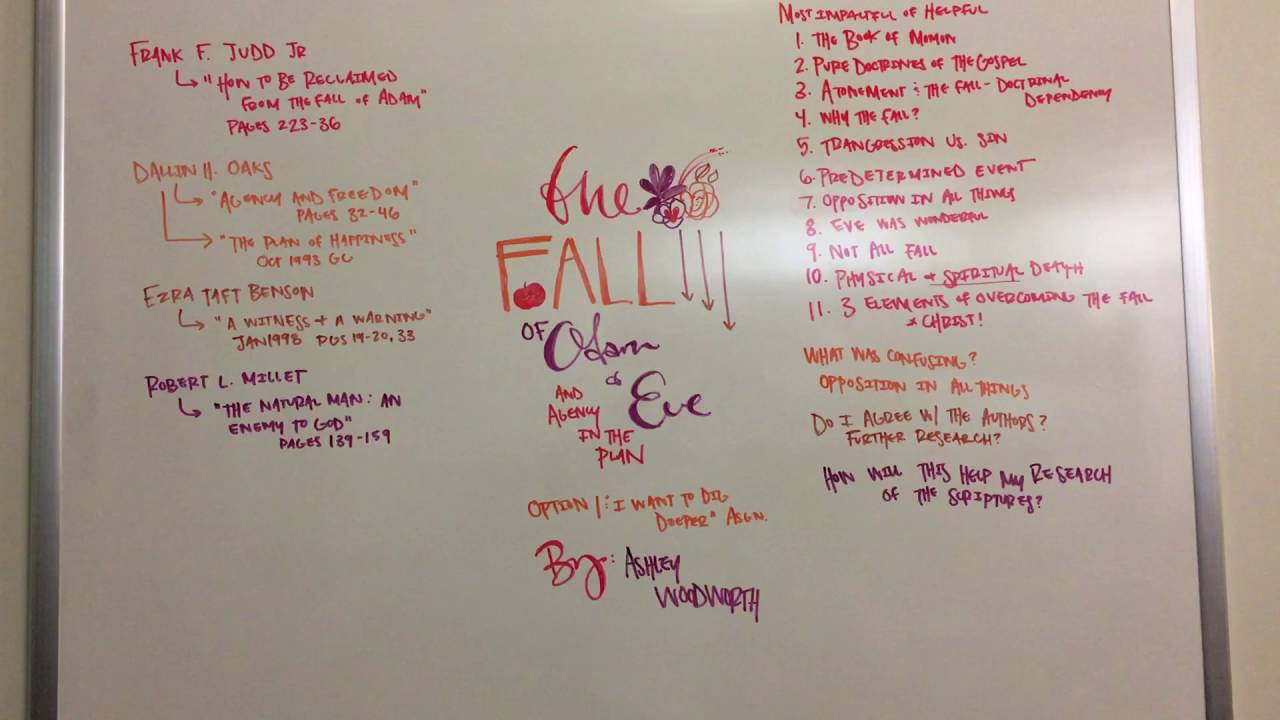 FRANK F. JUDD JR
"HOW TO BE RECLAIMED
FROM THE FALL OF ADAM"
PAGES 223-36
DALLIN H. OAKS
"AGENCY AND FREEDOM"
PAGES 32-46
"THE PLAN OF HAPPINESS"
OCT 1993 GC
EZRA TAFT BENSON
"A WITNESS + A WARNING"
JAN 1998 PGS 19-20, 33
ROBERT L. MILLET
"THE NATURAL MAN: AN
ENEMY TO GOD"
PAGES 139-159
the
FALL
OF Adam
&
Eve
AND
AGENCY
IN THE
PLAN
OPTION 1: I WANT TO DIG
DEEPER" ASGN.
By: ASHLEY
WOODWORTH
MOST IMPACTFUL OF HELPFUL
1. THE BOOK OF MORMON
2. PURE DOCTRINES OF THE GOSPEL
3. ATONEMENT & THE FALL - DOCTRINAL
DEPENDENCY
4. WHY THE FALL?
5. TRANGRESSION VS. SIN
6. PREDETERMINED EVENT
7. OPPOSITION IN ALL THINGS
8. EVE WAS WONDERFUL
9. NOT ALL FALL
10. PHYSICAL + SPIRITUAL DEATH
11. 3 ELEMENTS OF OVERCOMING THE FALL
* CHRIST!
WHAT WAS CONFUSING?
OPPOSITION IN ALL THINGS
DO I AGREE W/ THE AUTHORS?
FURTHER RESEARCH?
HOW WILL THIS HELP MY RESEARCH
OF THE SCRIPTURES?